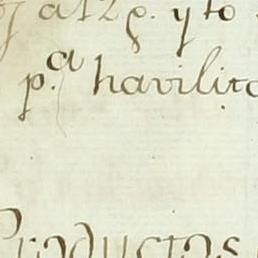 y to
p.ª havilita
Productos